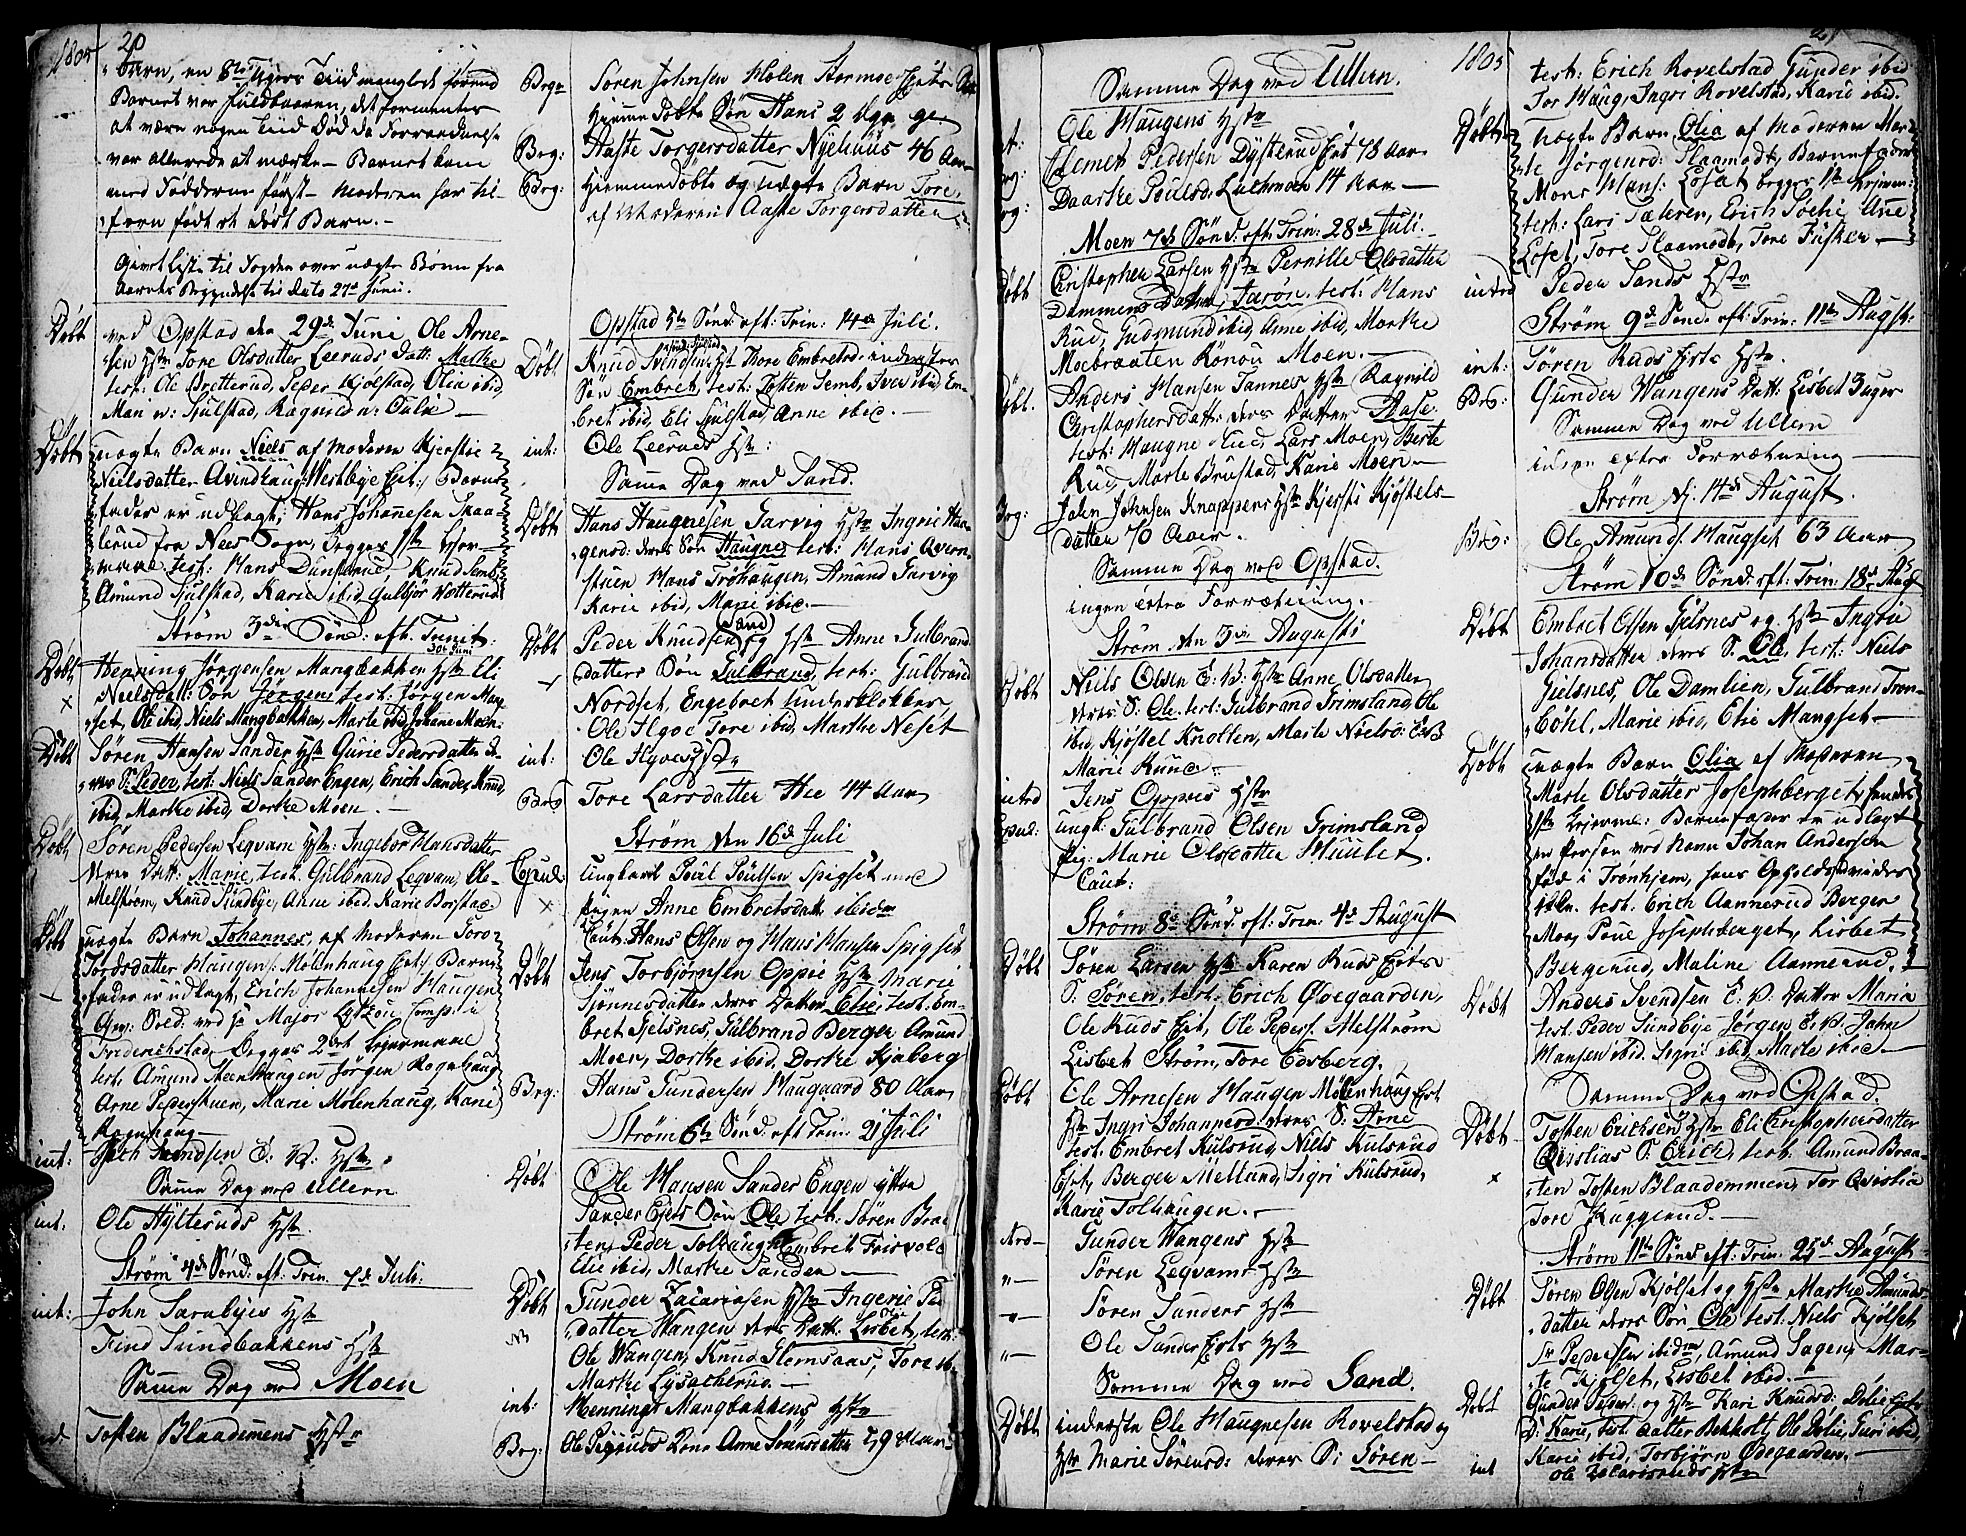 1805 20
Barn, en 8te Ugers Tiid manglede førend
Barnet var fuldbaaren, det formentes
at være nogen tiid Død da Forraadnelse
var allerede at mærke — Barnet kom
med Fødderne først — Moderen har til-
forn født et dødt Barn. —
Givet Liste til Fogden over uægte Børn fra
Aarets Begyndelse til dato 27de Junii.
Døbt ved Opstad den 29de Juni Ole Arne-
sen Hstr Tore Olsdatter Leeruds Datt: Marthe
test: Ole Bretterud, Peder Kjølstad, Olia ibid,
Mari Sjulstad, Ragnild
Døbt uægte Barn Niels af Moderen Kjerstie
Nielsdatter Avindhaug: Westbye Eit: Barne-
fader er udlagt; Hans Johannesen Skaa-
lerud fra Næs Sogn, begges 1ste Lejer-
maal test: Hans Dunserud Knud Semb,
Amund Sjulstad, Karie ibid, Gulbjør Wetterud
Strøm 3die Sønd: eft. Trinit:
30te Juni
Døbt Henning Jørgensen Mangbakken Hstr Eli
Nielsdatt: Søn Jørgen, test: Jørgen Mang-
set, Ole ibid, Niels Mangbakken, Marte ibid, Johane Moen
Døbt Søren Hansen Sander Hstr Gurie Pedersdatter de-
res S: Peder, test: Niels Sander Engen, Erich Sander, Knud
ibid, Marthe ibid, Dorthe Moen. —
Døbt Søren Pedersen Leqvam Hstr: Ingebor Hansdatter
deres Datt: Marie, test. Gulbrand Leqvam, Ole
Melstrøm, Knud Sundbye, Anne ibid, Karie Borstad
Døbt uægte Barn Johannes, af Moderen Toro
Tordsdatter Haugen: Molenhaug Eit: Barne-
fader er udlagt, Erich Johannesen Haugen
Gev: Sold: ved Hr Major Lytzou Comp: i
Friderichstad begges 2det Lejermaal
test: Amund Steenhaugen Jørgen Rognhaug
Arne Pederstuen, Marie Molenhaug, Karie
Rognhaug —
int: Svendsen E: W: Hstr
Samme Dag ved Ullern
int: Ole Hylteruds Hstr.
Strøm 4de Sønd: eft. Trin. 7de Juli:
int: John Sarabyes Hstr
Find Sundbakkens Hstr
Samme Dag ved Moen
Tosten Blaadmens Hstr
Begr Søren Johnsen Holen Stormoe Ejets
hjemme Døbte Søn Hans 2 Uger gl.
Beg: Aaste Torgersdatter Nyehuus 46 Aar
Beg: Hjemmedøbte og Uægte Barn Tore,
af Moderen Aaste Torgersdatter
Opstad 5te Sønd: eft: Trin: 14de Juli.
Døbt Knud Svendsen Hst Thore Embretsd: inderster
Søn Embret, test: Tosten Semb, Iver ibid, Em-
bret ibid, Eli Sjulstad, Anne ibid. —
int: Ole Leeruds Hstr:
Samme Dag ved Sand.
Døbt Hans Haugnesen Garvig Hstr Ingrie Haa-
gensd: deres Søn Haugne, test: Hans Avern-
stuen Hans Trøhaugen, Amund Garvig
Karie ibid, Marie ibid. —
Døbt Peder Knudsen (Sand) og Hst Anne Gulbrands-
datters Søn Gulbrand, test: Gulbrand
Nordset, Engebret Underklokker,
Ole Hgoe Tore ibid, Marthe Neset
int: Ole Hgoes Hstr
Beg Tore Larsdatter Hee 44 Aar
Strøm den 16de Juli
Copul: Ungkarl Poul Poulsen Spigset med
Pigen Anne Embretsdatt: ibidem
Caut: Hans Olsen og Hans Hansen Spigset
Døbt Jens Torbjørnsen Oppie Hstr Marie
Sjønnesdatter deres Datter Elie, test: Em-
bret Gjelsnes, Gulbrand Berger, Amund
Moen, Dorthe ibid, Dorthe Kjaberg
Beg: Hans Gundersen Haugaard 80 Aar
Strøm 6te Sønd: eft Trin: 21 Juli
Døbt Ole Hansen Sander Engen
Sander Ejets Søn Ole test: Søren Bra-
ten, Peder Tolhaug, Embret Frisvold
Elie ibid, Marthe Sanden —
Døbt Gunder Zacariasen Hstr Ingerie
datter Wangen deres Datt: Lisbet, test:
Ole Wangen, Knud Slemsaas, Tore ib:
Marthe Lysacherud. —
int: Hennings Mangbakkens Hstr
Beg: Ole Kone Anne Sørensdatter 59 Aar
Samme Dag ved Ullern.
Ole Haugens Hstr
Clemet Pedersen Dysterud Eit 78 Aar
Daarthe Poulsd: Luthmoen 14 Aar —
Moen 7de Sønd: eft. Trin: 28de Juli. —
Døbt Christopher Larsen Hstr Pernille Olsdatter
Dammens Datter, Tarøn, test: Hans
Rud, Gudmund ibid, Anne ibid, Marthe
Moebraaten Rønou Moen. —
Døbt. Anders Hansen Tannes Hstr Ragnild
Christophersdatt: deres Datter Aase
test: Haugne Rud, Lars Moen, Berte
Rud, Marte Brustad, Karie Moen —
Beg: John Johnsen Knappens Hstr Kjersti Kjøstels-
datter 70 Aar.
Samme Dag ved Opstad.
ingen extra Forretning.
Strøm den 3die Augusti
Døbt Niels Olsen E: W: Hstr Anne Olsdatter
deres S: Ole, test: Gulbrand Grimsland, Ole
ibid, Kjøstel Knollen, Marte Nielsd:
Marie Kund:
introd Jens Hstr
Copul: Ungk: Gulbrand Olsen Grimsland
Pig: Marie Olsdatter Huulet.
Caut:
Strøm 8de Sønd: eft: Trin: 4de August
Døbt Søren Larsen Hstr Karen Ruds Eits
S: Søren, test: Erich Ødegaarden,
Ole Ruds Eit, Ole Peders: Melstrøm
Lisbet Strøm, Tore Edsberg.
Døbt Ole Arnesen Haugen Molenhaug Eit
Hstr Ingri Johannesd: deres S: Arne
test: Embret Kulsrud, Niels Kulsrud
Berger Mellund, Sigri Kulsrud,
Karie Tolhaugen. —
Gunder Wangens Hstr
"— Søren Leqvams Hstr
"— Søren Sanders Hstr
"— Ole Sander Eits Hstr
Samme Dag ved Sand.
Døbt inderste Ole Haugnesen Rovelstad og
Hstr Marie Sørensd: deres S: Søren —
1805 21
test: Erich Rovelstad Gunder ibid
Tor Haug, Ingri Rovelstad, Karie ibid.
Døbt uægte Barn Olia af Moderen Mar-
te Jørgensd: Slaamodt, Barnefader
Mons Hans: Lofat begges 1ste Lejerm:
test: Lars Sæteren, Erich Sochi Ane
Lofet, Tore Slaamodt, Tore Fusker —
introd Peder Sands Hstr
Strøm 9de Sønd: eft: Trin: 11te August:
int: Søren Ruds Eits Hstr.
Beg: Gunder Wangens Datt: Lisbet 3 uger
Samme Dag ved Ullern
ingen extra Forretning —
Strøm d: 14de August.
Beg: Ole Amunds: Haugset 63 Aar
Strøm 10de Sønd: eft: Trin: 18de Aug
Døbt Embret Olsen Gjelsnes og Hstr Ingrie
Johansdatter deres S. Ole, test: Niels
Gjelsnes, Ole Damlien, Gulbrand Tron-
bøhl, Marie ibid, Elie Mangset —
Døbt uægte Barn Olia af Moderen
Marte Olsdatter Josephberget, hendes
1ste Lejerm: Barnefader er udlagt
en Person ved Navn Johan Andersen
fød i Tronhjem, hans Opholdsted vides
ikke. test: Erich Aannerud Berger
Moe, Poul Josephberget, Lisbet
Bergerud, Maline Aannerud. —
Døbt Anders Svendsen E: W: Datter Maria
test. Peder Sundbye Jørgen E: W. John
Hansen ibid. Sigri ibid, Marte ibid —
Samme Dag ved Opstad.
Døbt Tosten Erichsen Hstr Eli Christophersdatter
Qvislias S: Erich, test: Amund Braa-
ten Tosten Blaademmen, Tor Qvislia
Tore Kaggerud. —
Strøm 11te Sønd: eft: Trin: 25de August
Døbt Søren Olsen Kjølset og Hstr Marthe Amunds-
datter deres Søn Ole test: Niels Kjølset
Pedersen ibidm, Amund Sagen, Mar-
te Kjølset, Lisbet ibid. —
Døbt Gunder Peders: og Hstr Kari Knudsd: Dølie Eits
D: Karie, test: Halter Bekholt, Ole Dølie, Guri ibid,
Karie ibid, Torbjørn Ødegaarden. —
int Ole Zacarisruds Hstr